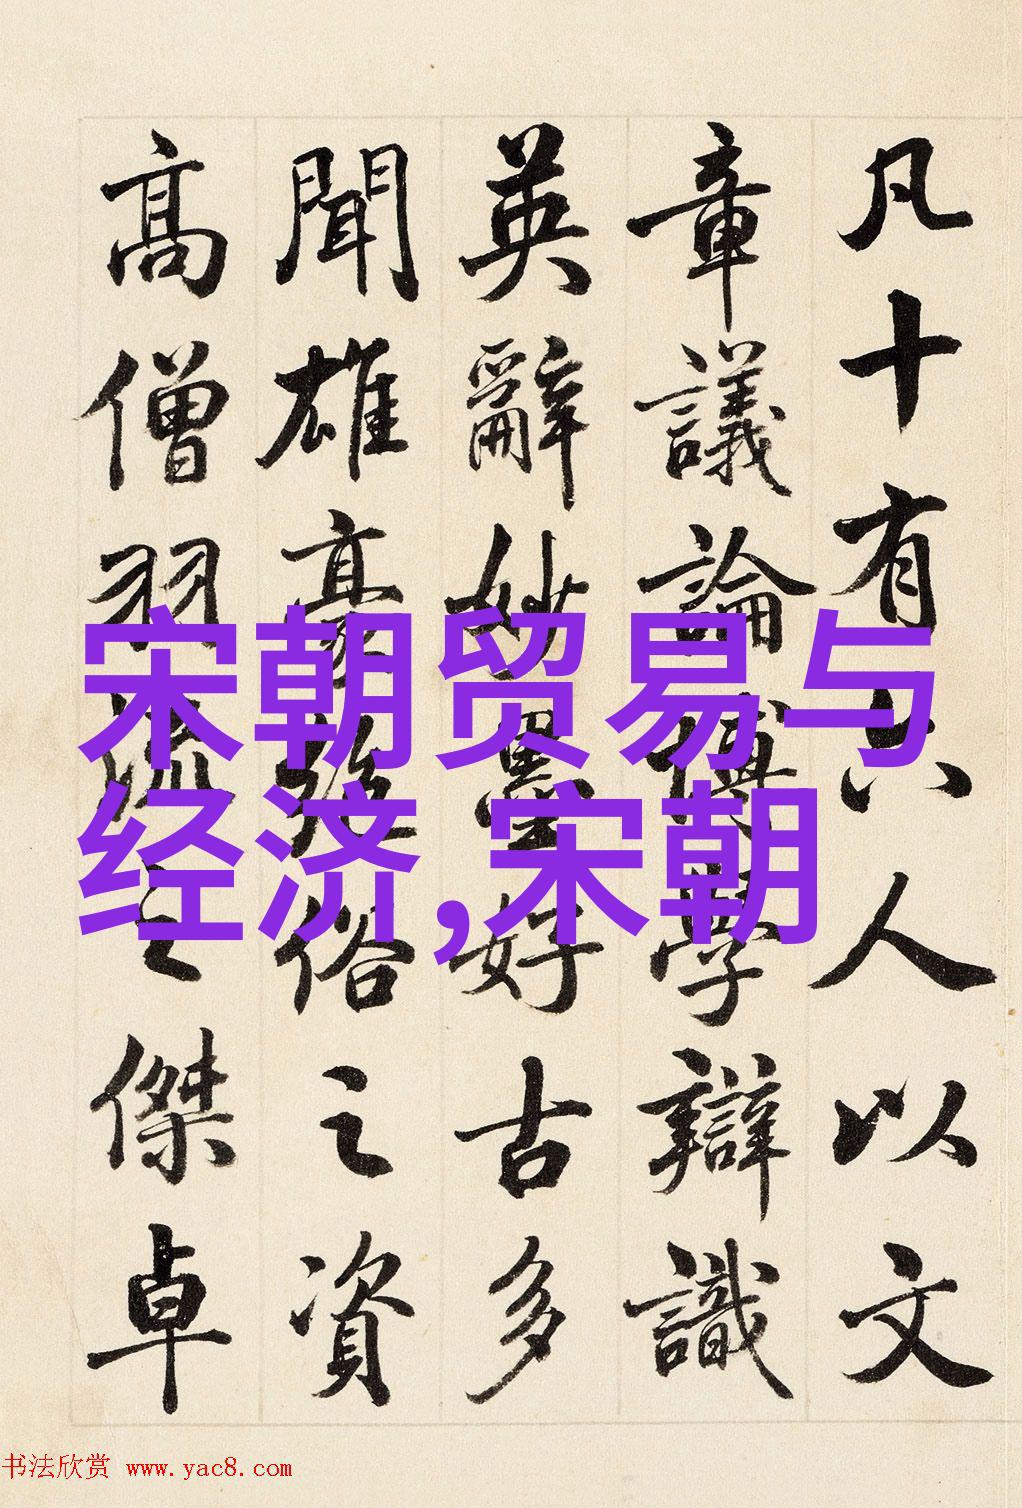 凡十有六人以文
章議論博學辯識
英辭妙墨好古多
聞雄豪絕俗之資
高僧羽流之傑卓
宋朝贸易与
经济,宋朝
书法欣赏 www.yac8.com